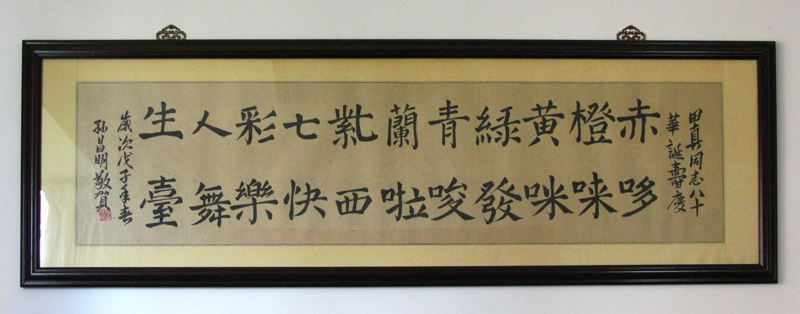 真同志八十
華誕壽慶
赤哆
橙唻
黄咪
緑發
青唆
蘭啦
紫西
七快
彩樂
人舞
生臺
歲次戊子年春
孙昌明敬賀